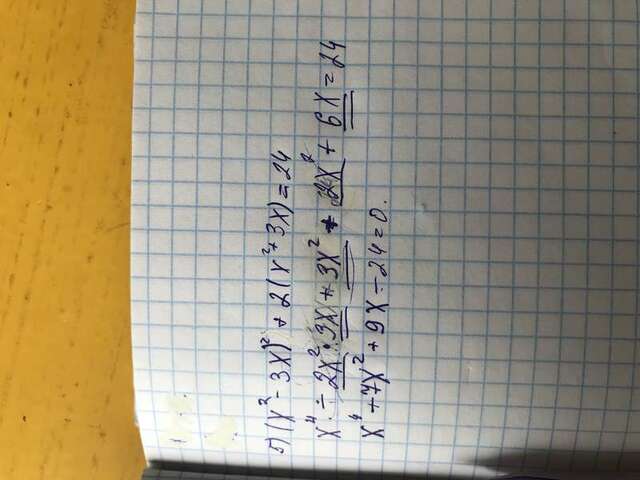 5) (x² - 3x)² + 2(x² + 3x) = 24
x⁴ - 2x² · 3x + 3x² + 2x² + 6x = 24
x⁴ + 7x² + 9x - 24 = 0.